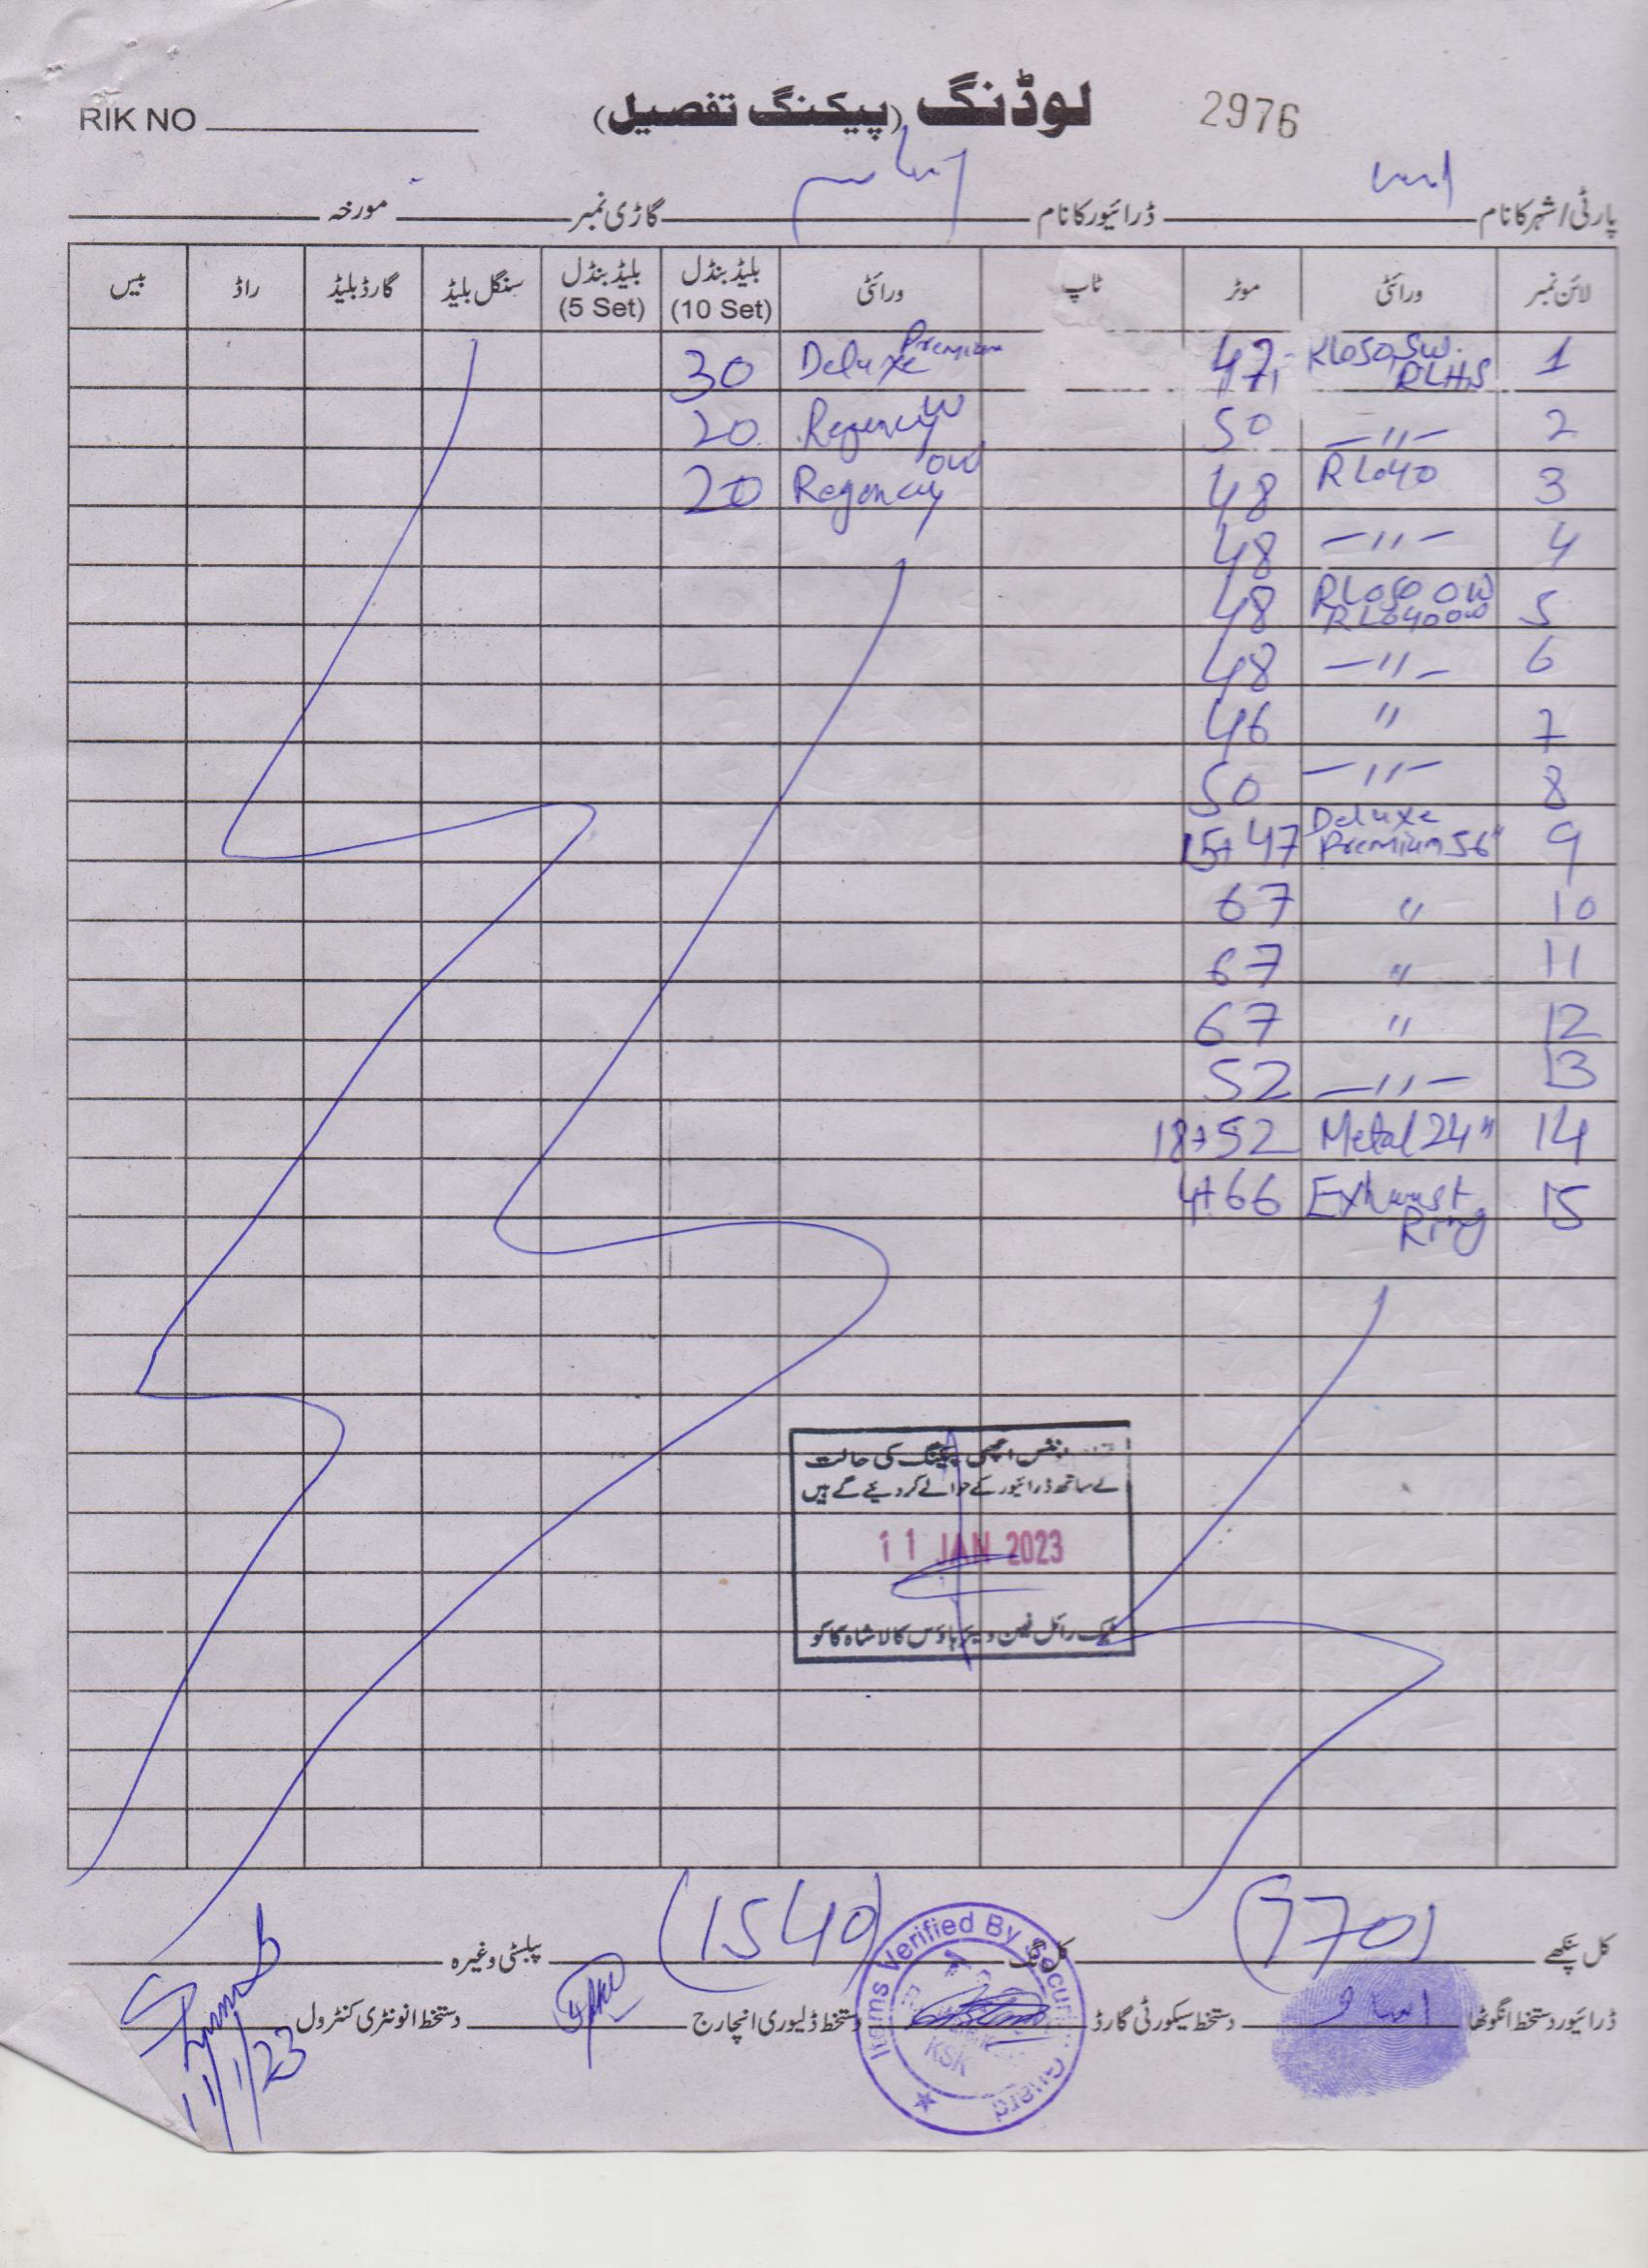 RIK NO
لوڈنگ (پیکنگ تفصیل)
2976
پارٹی/شہر کا نام
ڈرائیور کا نام
گاڑی نمبر
مورخہ
لائن نمبر ورائٹی موٹر ٹاپ ورائٹی بلیڈ بنڈل (10 Set) بلیڈ بنڈل (5 Set) سنگل بلیڈ گارڈ بلیڈ راڈ بیس
1 RL050 SW. RLHS 47 Deluxe Premium 30
2 —〃— 50 Regency W 20
3 RL040 48 Regency OW 20
4 —〃— 48
5 RL050 OW RL040 OW 48
6 —〃— 48
7 〃 46
8 —〃— 50
9 Deluxe Premium 56" 15+47
10 〃 67
11 〃 67
12 〃 67
13 —〃— 52
14 Metal 24" 18+52
15 Exhaust Ring 4+66
اچھی پیکنگ کی حالت
کے ساتھ ڈرائیور کے حوالے کر دیئے گے ہیں
11 JAN 2023
رائل فین ویئر ہاؤس کالا شاہ کاکو
کل پنکھے (770)
کل نگ (1540)
پیلسٹی وغیرہ
Items Verified By Security Guard
KSK
ڈرائیور دستخط انگوٹھا
دستخط سیکورٹی گارڈ
دستخط ڈلیوری انچارج
دستخط انونٹری کنٹرول
11/1/23